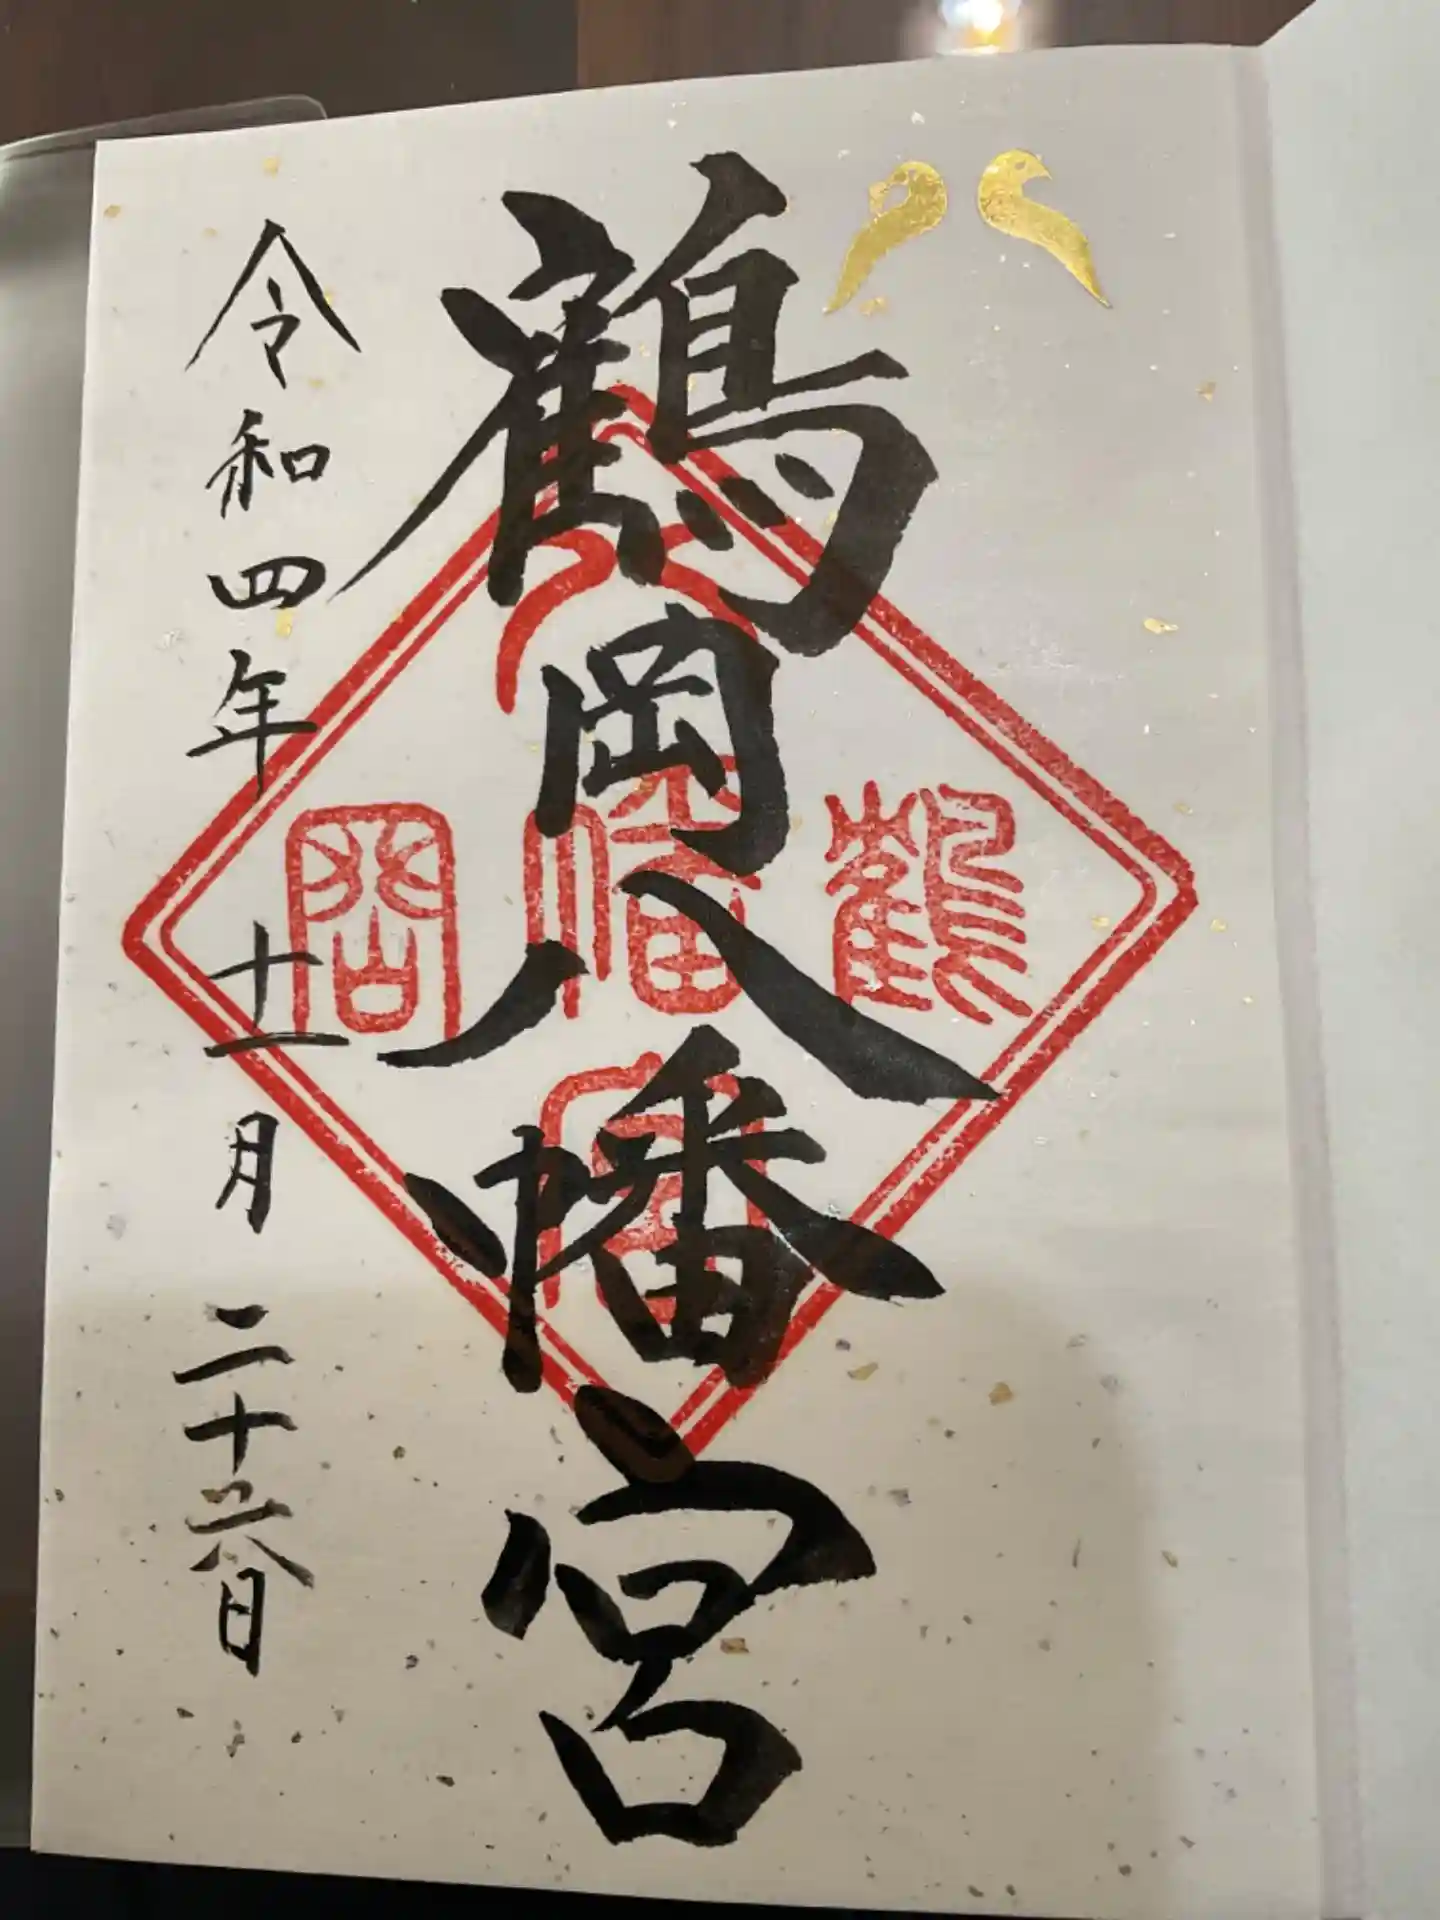 八
鶴岡八幡宮
鶴岡八幡宮
令和四年十一月二十六日